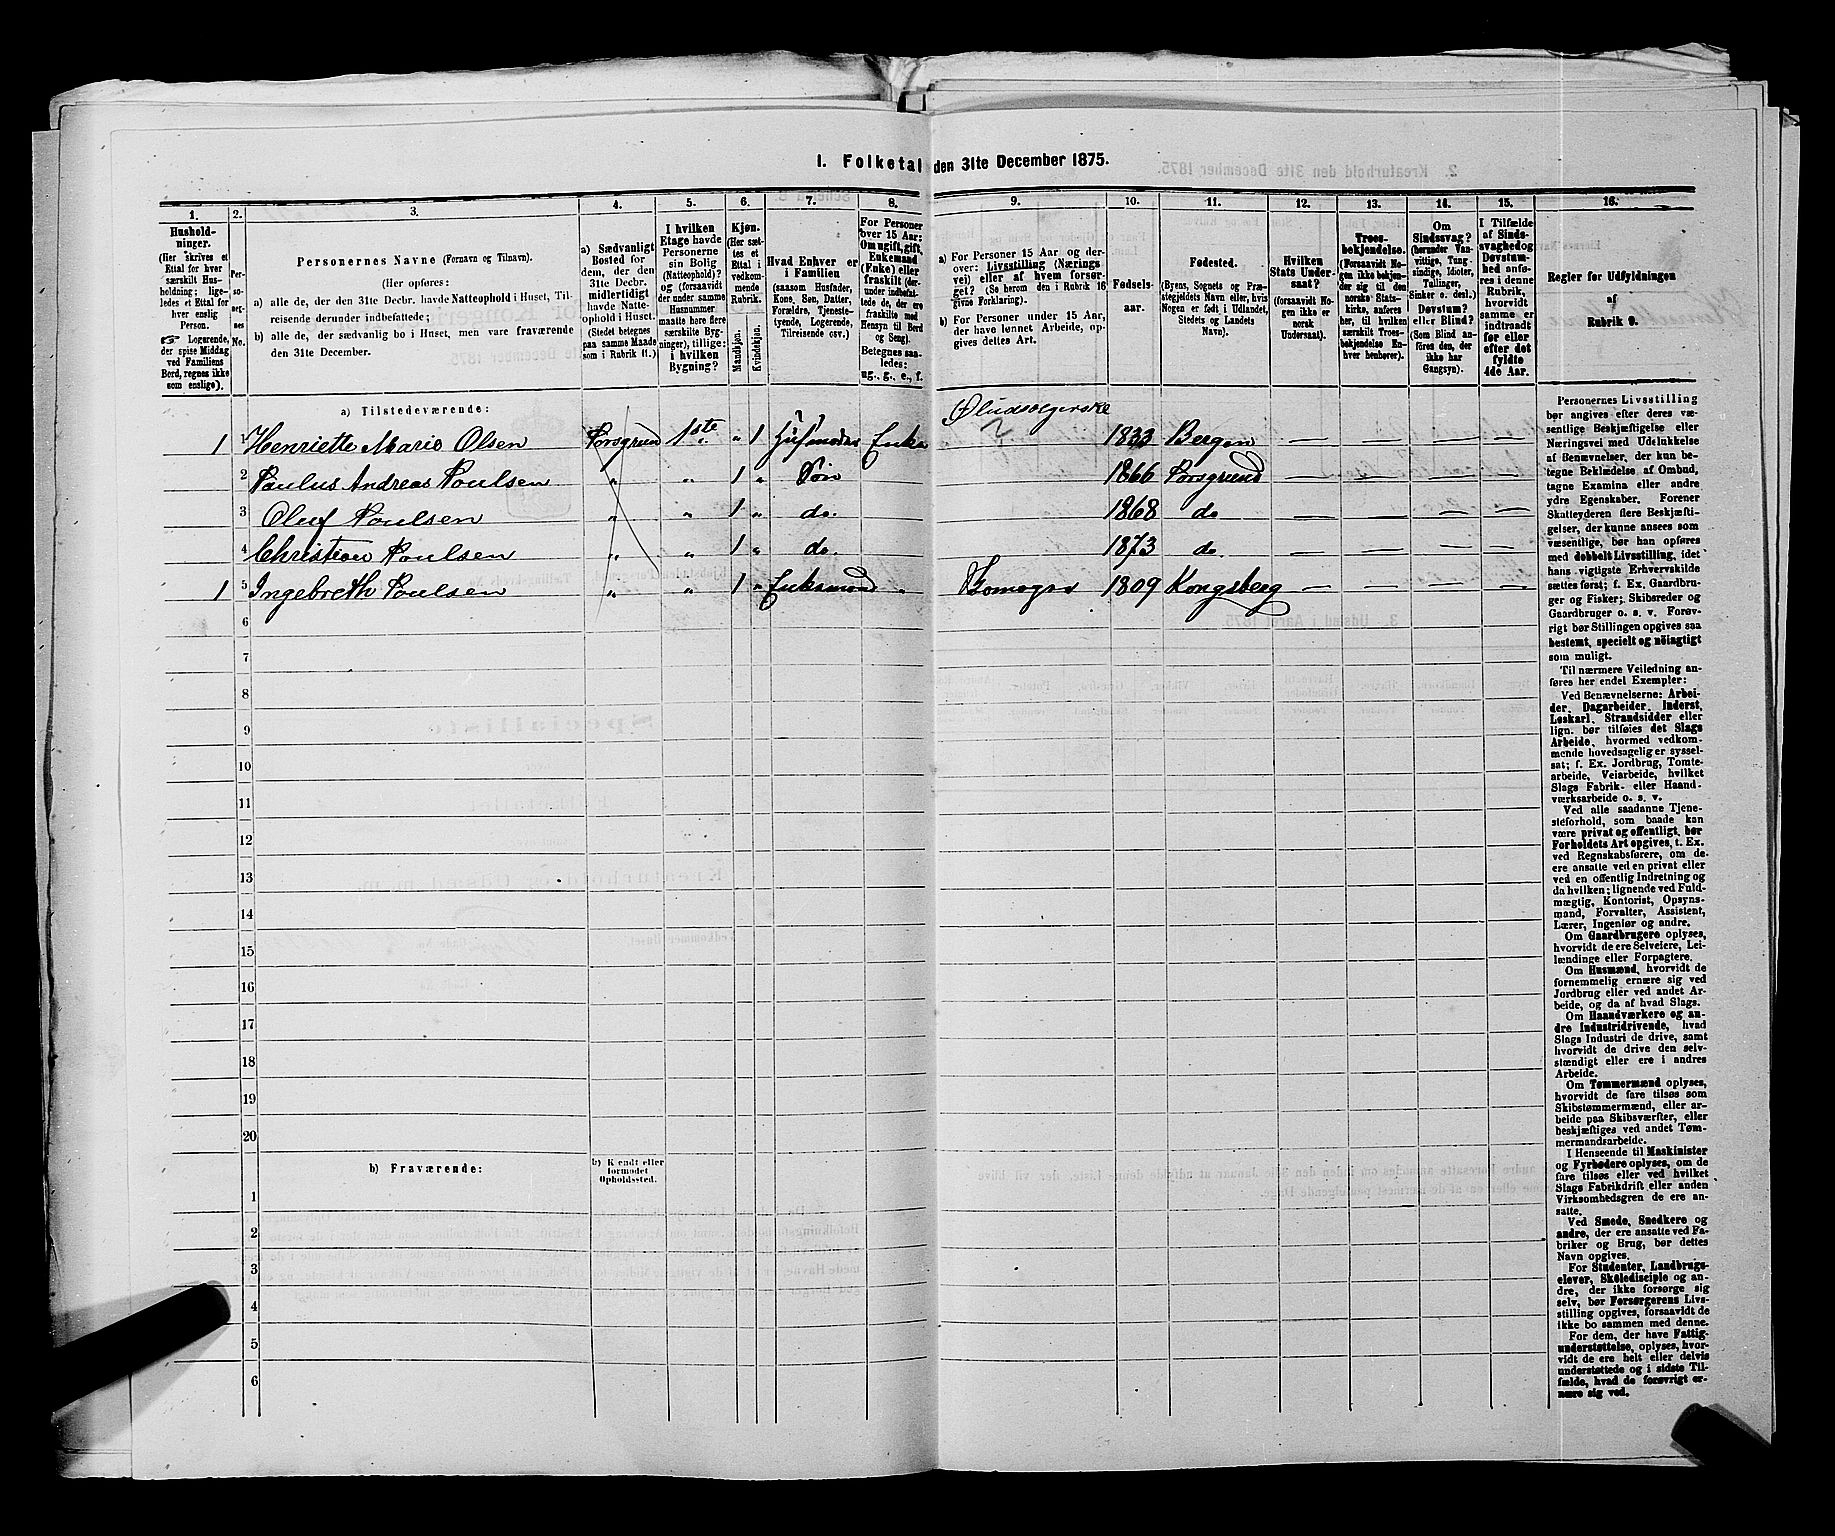 I. Folketal den 31te December 1875.
1. 2. 3. 4. 5. 6. 7. 8. 9. 10. 11. 12. 13. 14. 15. 16.
Hushold-
ninger.
(Her skrives et
Ettal for hver
særskilt Hus-
holdning; lige-
ledes et Ettal for
hver enslig
Person.
☞ Logerende,
der spise Middag
ved Familiens
Bord, regnes ikke
som enslige).
Per-
so-
ner-
nes
No.
Personernes Navne (Fornavn og Tilnavn).
(Her opføres:
a) alle de, der den 31te Decbr. havde Natteophold i Huset, Til-
reisende derunder indbefattede;
b) alle de, der sædvanlig bo i Huset, men vare fraværende
den 31te December.
a) Sædvanligt
Bosted for
dem, der den
31te Decbr.
midlertidigt
havde Natte-
ophold i Huset.
(Stedet betegnes
paa samme Maade
som i Rubrik 11.)
I hvilken
Etage havde
Personerne
sin Bolig
(Natteophold)?
og (forsaavidt
der under samme
Husnummer
maatte høre flere
særskilte Byg-
ninger), tillige:
i hvilken
Bygning?
Kjøn.
(Her sæt-
tes et
Ettal i
vedkom-
mende
Rubrik.
Mandkjøn.
Kvindekjøn.
Hvad Enhver er
i Familien
(saasom Husfader,
Kone, Søn, Datter,
Forældre, Tjeneste-
tyende, Logerende,
Tilreisende osv.)
For Personer
over 15 Aar:
Om ugift, gift,
Enkemand
(Enke) eller
fraskilt (der-
under indbefat-
tede de, der ere
fraskilte med
Hensyn til Bord
og Seng).
Betegnes saa-
ledes:
ug., g., e., f.
a) For Personer 15 Aar og der-
over: Livsstilling (Nærings-
vei) eller af hvem forsør-
get? (Se herom den i Rubrik 16
givne Forklaring).
b) For Personer under 15 Aar,
der have lønnet Arbeide, op-
gives dettes Art.
Fødsels-
aar.
Fødested.
(Byens, Sognets og Præ-
stegjeldets Navn eller, hvis
Nogen er født i Udlandet,
Stedets og Landets
Navn).
Hvilken
Stats Under-
saat?
(forsaavidt No-
gen ikke er
norsk
Undersaat).
Troes-
bekjendelse.
(Forsaavidt No-
gen ikke bekjen-
der sig til den
norske Stats-
kirke, anføres
her, til hvilken
særskilt Troes-
bekjendelse En-
hver henhører).
Om
Sindssvag?
(herunder Van-
vittige, Tung-
sindige, Idioter,
Tullinger,
Sinker o. desl.)
Døvstum?
eller Blind?
(Som Blind an-
føres den, der
ikke har
Gangsyn).
I Tilfælde
af Sinds-
svaghed og
Døvstum-
hed anfø-
res i denne
Rubrik,
hvorvidt
samme er
indtraadt
før eller
efter det
fyldte
4de Aar.
Regler for Udfyldningen
af
Rubrik 9.
a) Tilstedeværende:
Øludsælgerske
1 1 Henriette Marie Olsen Porsgrund 1ste „ 1 Husmoder Enke 1833 Bergen — — — —
2 Paulus Andreas Poulsen „ „ 1 „ Søn 1866 Porsgrund — — — —
3 Oluf Poulsen „ „ 1 „ do. 1868 do — — — —
4 Christian Poulsen „ „ 1 „ do. 1873 do. — — — —
1 5 Ingebreth Poulsen „ „ 1 „ Enkemand „ 1809 Kongsberg — — — —
6
7
8
9
10
11
12
13
14
15
16
17
18
19
20
b) Fraværende:
b) Kjendt eller
formodet
Opholdssted.
1
2
3
4
5
6
Personernes Livsstilling
bør angives efter deres væ-
sentlige Beskjæftigelse eller
Næringsvei med Udelukkelse
af Benævnelser, der kun be-
tegne Beklædelse af Ombud,
tagne Examina eller andre
ydre Egenskaber. Forener
Skatteyderen flere Beskjæfti-
gelser, der kunne ansees som
væsentlige, bør han opføres
med dobbelt Livsstilling, idet
hans vigtigste Erhvervskilde
sættes først; f. Ex. Gaardbru-
ger og Fisker; Skibsreder og
Gaardbruger o. s. v. Forøv-
rigt bør Stillingen opgives saa
bestemt, specielt og nöiagtigt
som muligt.
Til nærmere Veiledning an-
føres her endel Exempler:
Ved Benævnelserne: Arbei-
der, Dagarbeider, Inderst,
Løskarl, Strandsidder eller
lign. bør tilføies det Slags
Arbeide, hvormed vedkom-
mende hovedsagelig er syssel-
sat; f. Ex. Jordbrug, Tomte-
arbeide, Veiarbeide, hvilket
Slags Fabrik- eller Haand-
værksarbeide o. s. v.
Ved alle saadanne Tjene-
steforhold, som baade kan
være privat og offentligt, bør
Forholdets Art opgives, t. Ex.
ved Regnskabsførere, om de
ere ansatte ved en privat eller
ved en offentlig Indretning og
da hvilken; lignende ved Fuld-
mægtig, Kontorist, Opsyns-
mand, Forvalter, Assistent,
Lærer, Ingeniør og andre.
Om Gaardbrugere oplyses,
hvorvidt de ere Selveiere, Lei-
lændinge eller Forpagtere.
Om Husmænd, hvorvidt de
fornemmelig ernære sig ved
Jordbrug eller ved andet Ar-
beide, og da af hvad Slags.
Om Haandværkere og an-
dre Industridrivende, hvad
Slags Industri de drive, samt
hvorvidt de drive den selv-
stændigt eller ere i andres
Arbeide.
Om Tømmermænd oplyses,
hvorvidt de fare tilsøs som
Skibstømmermænd, eller ar-
beide paa Skibsværfter, eller
beskjæftiges ved andet Tøm-
mermandsarbeide.
I Henseende til Maskinister
og Fyrbødere oplyses, om de
fare tilsøs eller ved hvilket
Slags Fabrikdrift eller anden
Virksomhedsgren de ere an-
satte.
Ved Smede, Snedkere og
andre, der ere ansatte ved Fa-
briker og Brug, bør dettes
Navn opgives.
For Studenter, Landbrugs-
elever, Skoledisciple og an-
dre, der ikke forsørge sig
selv, bør Forsørgerens Livs-
stilling opgives, forsaavidt de
ikke bo sammen med denne.
For dem, der have Fattig-
understøttelse, oplyses, hvor-
vidt de ere helt eller delvis
understøttede og i sidste Til-
fælde, hvad de forøvrigt er-
nære sig ved.